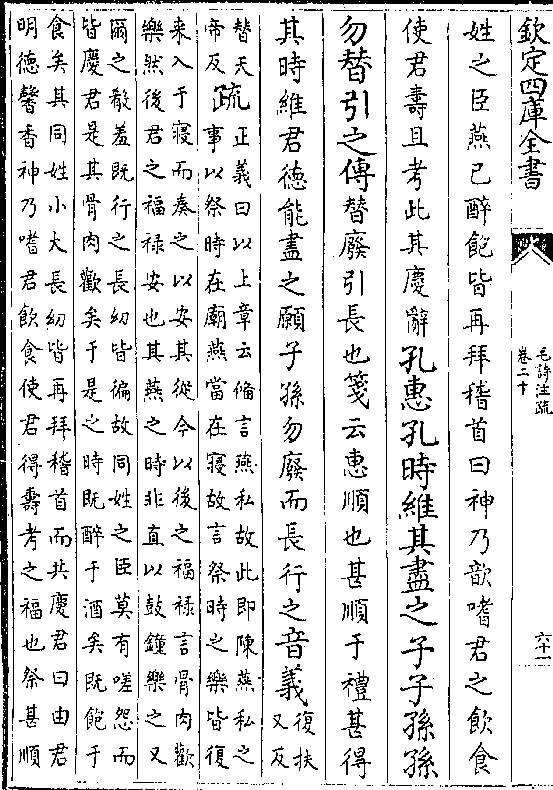 欽定四庫全書
毛詩注疏
卷二十
六十一
姓之臣燕已醉飽皆再拜稽首曰神乃歆嗜君之飲食
使君壽且考此其慶辭孔惠孔時維其盡之子子孫孫
勿替引之傳替廢引長也箋云惠順也甚順于禮甚得
其時維君德能盡之願子孫勿廢而長行之音義復扶
又反
替天
帝反疏正義曰以上章云備言燕私故此即陳燕私之
事以祭時在廟燕當在寢故言祭時之樂皆復
来入于寢而奏之以安其從今以後之福禄言骨肉歡
樂然後君之福禄安也其燕之時非直以鼓鐘樂之又
爾之殽羞既行之長幼皆徧故同姓之臣莫有嗟怨而
皆慶君是其骨肉歡矣于是之時既醉于酒矣既飽于
食矣其同姓小大長幼皆再拜稽首而共慶君曰由君
明德馨香神乃嗜君飲食使君得壽考之福也祭甚順